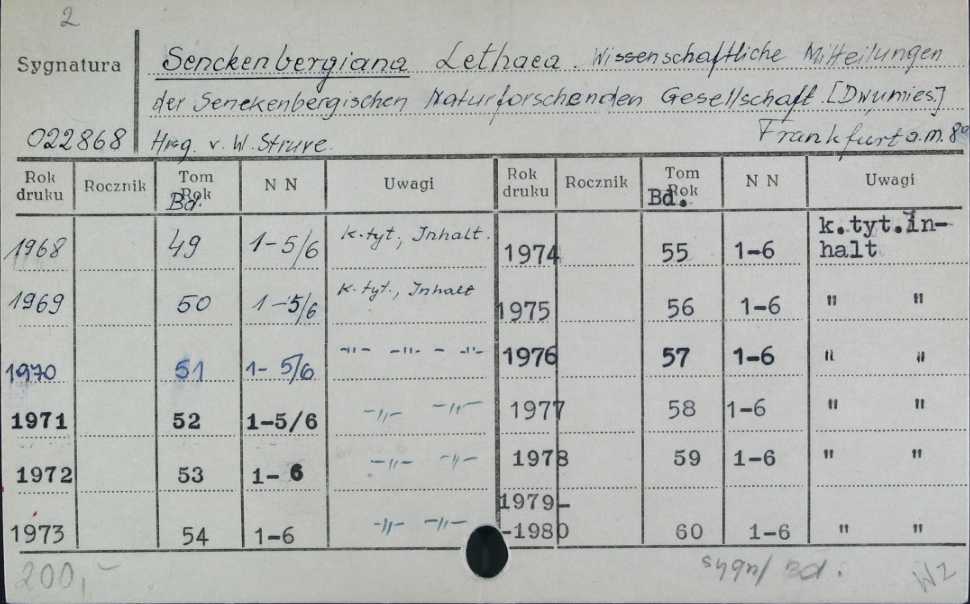 2
Sygnatura
Senckenbergiana Lethaea. Wissenschaftliche Mitteilungen
der Senckenbergischen Naturforschenden Gesellschaft. [Dwumies.]
022868 Hrsg. v. W. Struve. Frankfurt a.M. 8°
Rok druku Rocznik Tom Rok Bd. N N Uwagi Rok druku Rocznik Tom Rok Bd. N N Uwagi
1968 49 1-5/6 k.tyt., Inhalt. 1974 55 1-6 k.tyt.In-
halt
1969 50 1-5/6 k.tyt., Inhalt 1975 56 1-6 " "
1970 51 1-5/6 -"- -"- - -"- 1976 57 1-6 " "
1971 52 1-5/6 -"- -"- 1977 58 1-6 " "
1972 53 1-6 -"- -"- 1978 59 1-6 " "
1979-
1973 54 1-6 -"- -"- -1980 60 1-6 " "
200,-
W2